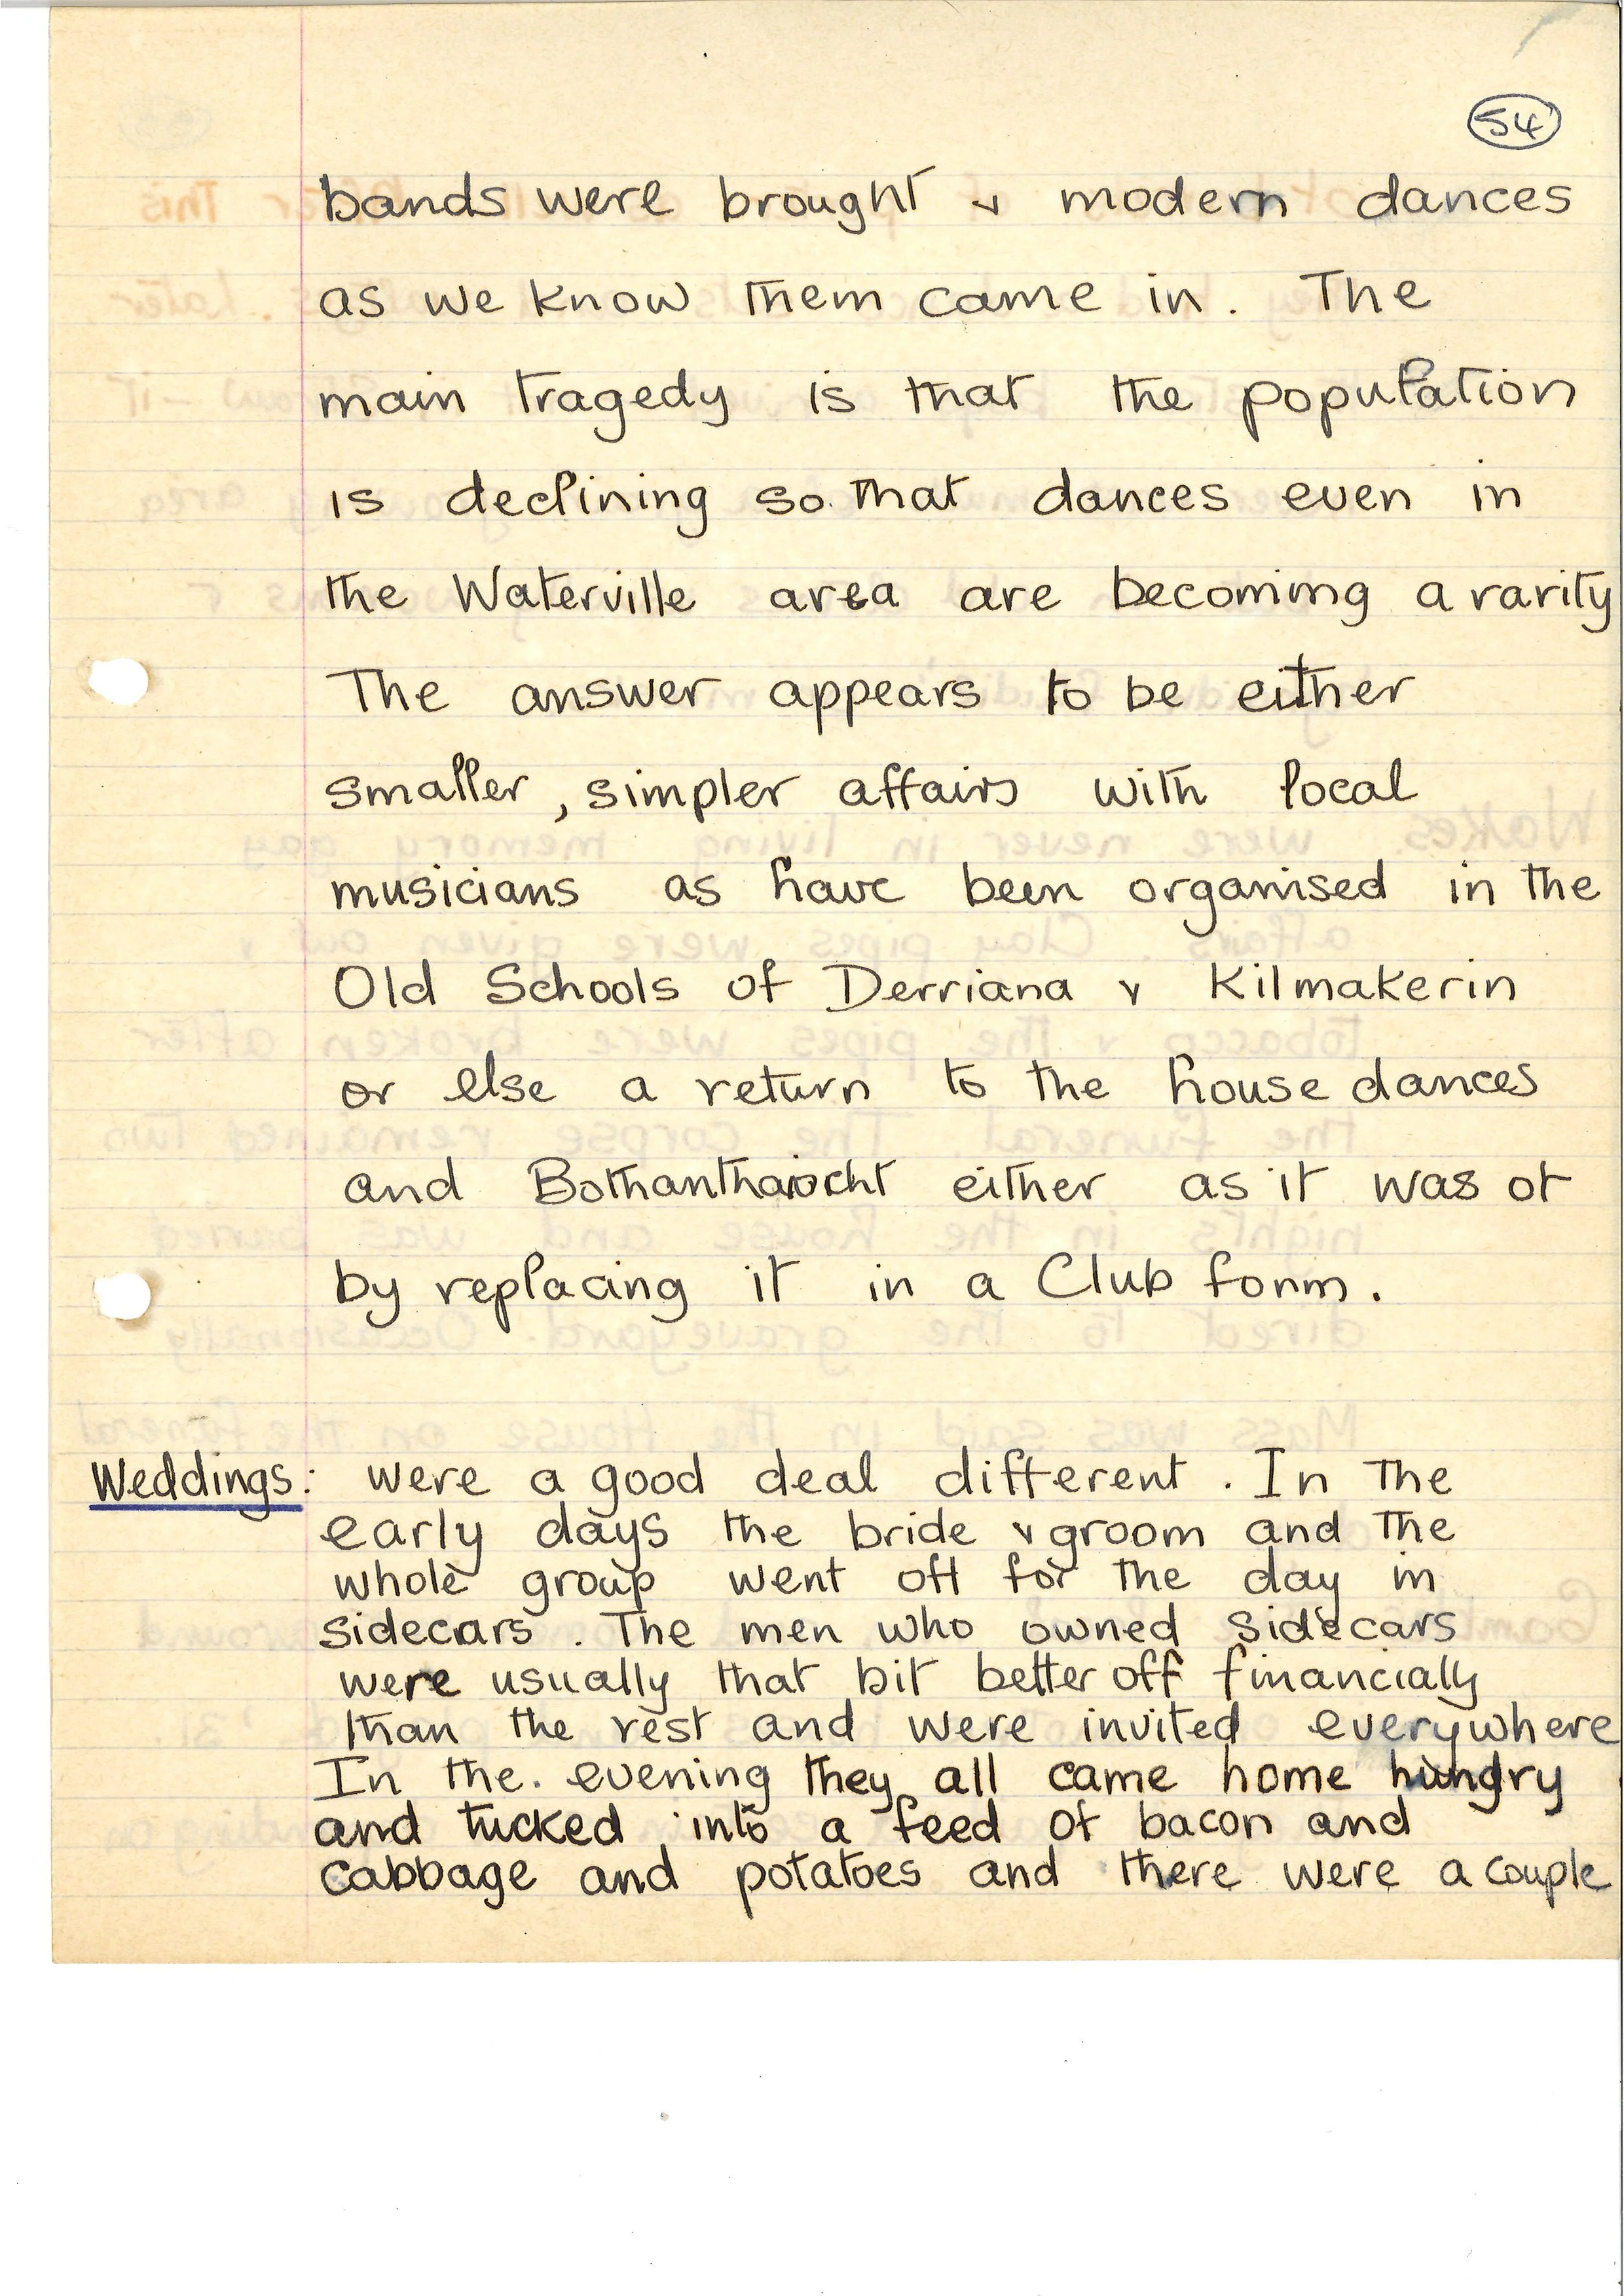 54
bands were brought & modern dances
as we know them came in. The
main tragedy is that the population
is declining so that dances even in
the Waterville area are becoming a rarity
The answer appears to be either
smaller, simpler affairs with local
musicians as have been organised in the
Old Schools of Derriana & Kilmakerin
or else a return to the house dances
and Bothanthaiocht either as it was or
by replacing it in a Club form.
Weddings: were a good deal different. In the
early days the bride & groom and the
whole group went off for the day in
sidecars. The men who owned sidecars
were usually that bit better off financially
than the rest and were invited everywhere
In the evening they all came home hungry
and tucked into a feed of bacon and
cabbage and potatoes and there were a couple